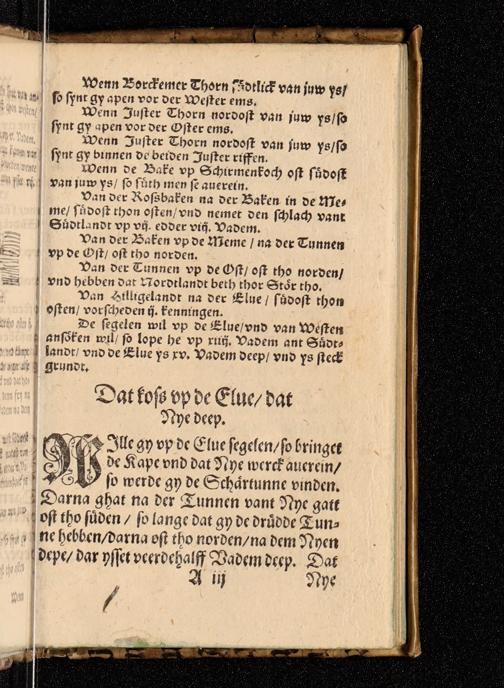 Wenn Borckemer Thorn südtlick van juw ys/
so synt gy apen vor der Wester ems.
Wenn Juster Thorn nordost van juw ys/so
synt gy apen vor der Oster ems.
Wenn Juster Thorn nordost van juw ys/so
synt gy binnen de beiden Juster riffen.
Wenn de Bake vp Schirmenkoch ost südost
van juw ys/ so süth men se auerein.
Van der Rossbaken na der Baken in de Me-
me/ südost thon osten/ vnd nemet den schlach vant
Südtlandt vp vij. edder viij. Vadem.
Van der Baken vp de Meme/ na der Tunnen
vp de Ost/ ost tho norden.
Van der Tunnen vp de Ost/ ost tho norden/
vnd hebben dat Nordtlandt beth thor Stör tho.
Van Hilligelandt na der Elue/ südost thon
osten/ vorscheden ij. kenningen.
De segelen wil vp de Elue/vnd van Westen
ansöken wil/ so lope he vp xiiij. Vadem ant Südt-
landt/ vnd de Elue ys xv. Vadem deep/ vnd ys steck
grundt.
Dat koss vp de Elue/ dat
Nye deep.
WIlle gy vp de Elue segelen/so bringet
de Kape vnd dat Nye werck auerein/
so werde gy de Schärtunne vinden.
Darna ghat na der Tunnen vant Nye gatt
ost tho süden/ so lange dat gy de drüdde Tun-
ne hebben/darna ost tho norden/na dem Nyen
depe/ dar ysset veerdehalff Vadem deep. Dat
A iij Nye